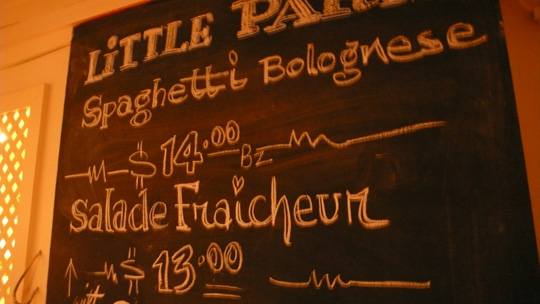 LiTTLE
Spaghetti Bolognese
$14.00 Bz
Salade Fraicheur
$13.00